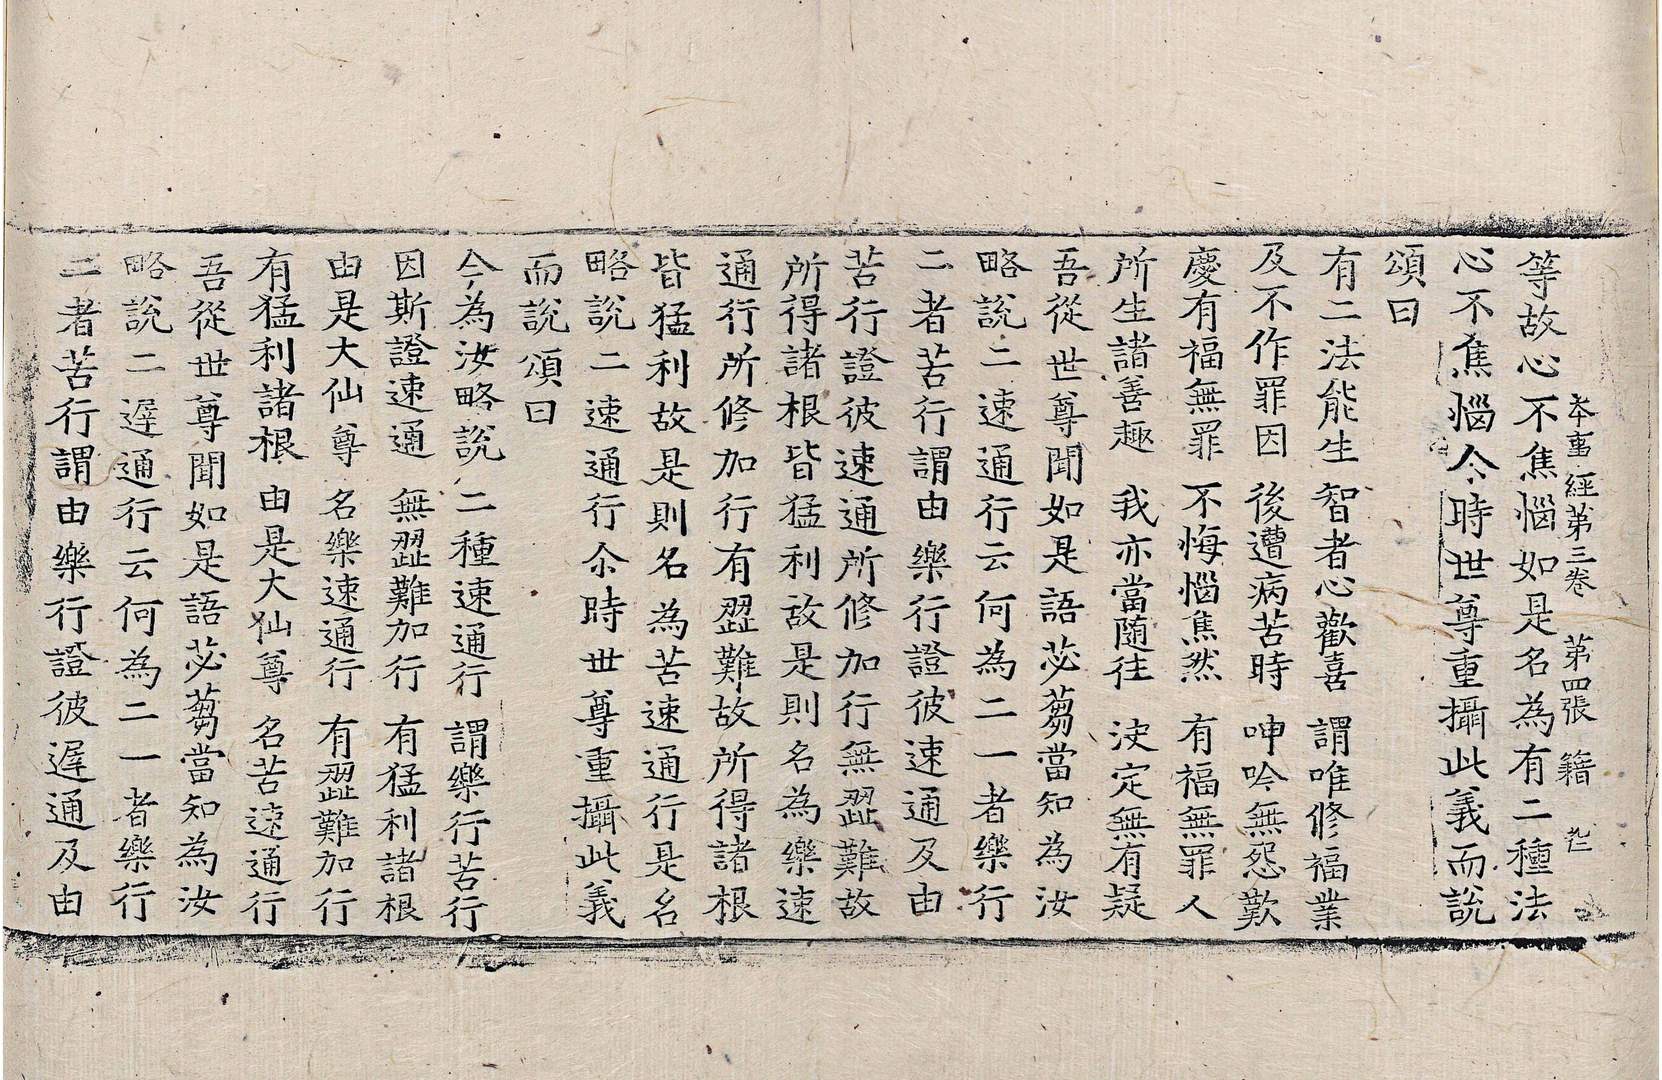 本事經第三卷 第四張 籍
等故心不焦惱如是名為有二種法
心不焦惱尒時世尊重攝此義而說
頌曰
有二法能生 智者心歡喜 謂唯修福業
及不作罪因 後遭病苦時 呻吟無怨歎
慶有福無罪 不悔惱焦然 有福無罪人
所生諸善趣 我亦當隨往 決定無有疑
吾從世尊聞如是語苾芻當知為汝
略說二速通行云何為二一者樂行
二者苦行謂由樂行證彼速通及由
苦行證彼速通所修加行無澀難故
所得諸根皆猛利故是則名為樂速
通行所修加行有澀難故所得諸根
皆猛利故是則名為苦速通行是名
略說二速通行尒時世尊重攝此義
而說頌曰
今為汝略說 二種速通行 謂樂行苦行
因斯證速通 無澀難加行 有猛利諸根
由是大仙尊 名樂速通行 有澀難加行
有猛利諸根 由是大仙尊 名苦速通行
吾從世尊聞如是語苾芻當知為汝
略說二遲通行云何為二一者樂行
二者苦行謂由樂行證彼遲通及由